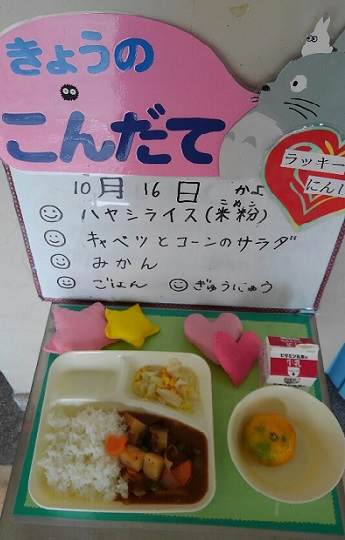 きょうの
こんだて
ラッキー
にんじ
10月16日 かよ
ハヤシライス(米粉)
こめこ
キャベツとコーンのサラダ
みかん
ごはん ぎゅうにゅう
牛乳